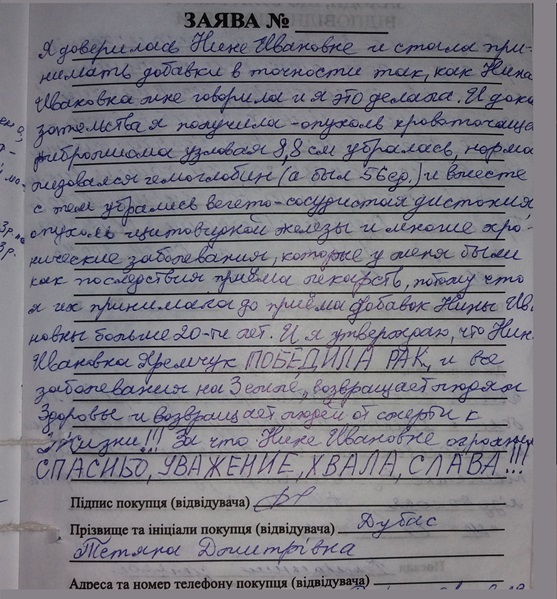 ЗАЯВА №
Я доверилась Нине Ивановне и стала при-
нимать добавки в точности так, как Нина
Ивановна мне говорила и я это делала. И дока
зательства я получила - опухоль кровоточаща
фибромиома узловая 8,8 см убралась, норма
лизовался гемоглобин (а был 56 ед.) и вместе
с тем убрались вегето-сосудистая дистония
опухоль щитовидной железы и многие хро-
нические заболевания, которые у меня были
как последствия приёма лекарств, потому что
я их принимала до приёма добавок Нины Ива
новны больше 20-ти лет. И я утверждаю, что Нин
Ивановна Яремчук ПОБЕДИЛА РАК, и все
заболевания на Земле, возвращает людям
Здоровье и возвращает людей от смерти к
Жизни!!! За что Нине Ивановне огромн
СПАСИБО, УВАЖЕНИЕ, ХВАЛА, СЛАВА!!!
Підпис покупця (відвідувача)
Прізвище та ініціали покупця (відвідувача) Дубас
Тетяна Дмитрівна
Адреса та номер телефону покупця (відвідувача)